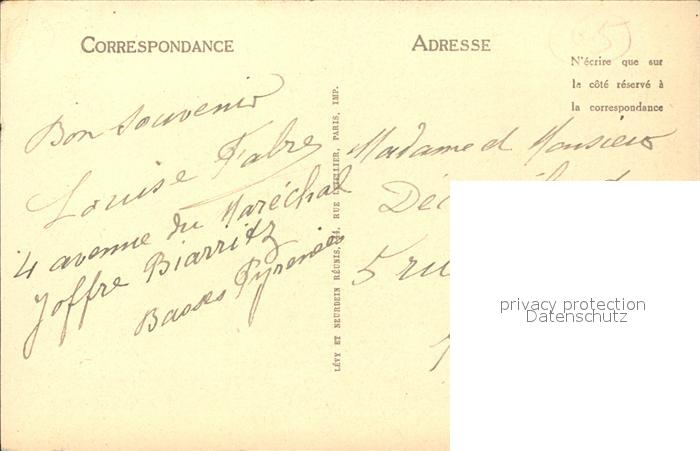 CORRESPONDANCE
ADRESSE
N'écrire que sur
le côté réservé à
la correspondance
Bon Souvenir
Louise Fabre
4 avenue du Maréchal
Joffre Biarritz
Basses Pyrénées
LÉVY ET NEURDEIN RÉUNIS, 44, RUE LETELLIER, PARIS, IMP.
Madame et Monsieur
5 ru
privacy protection
Datenschutz